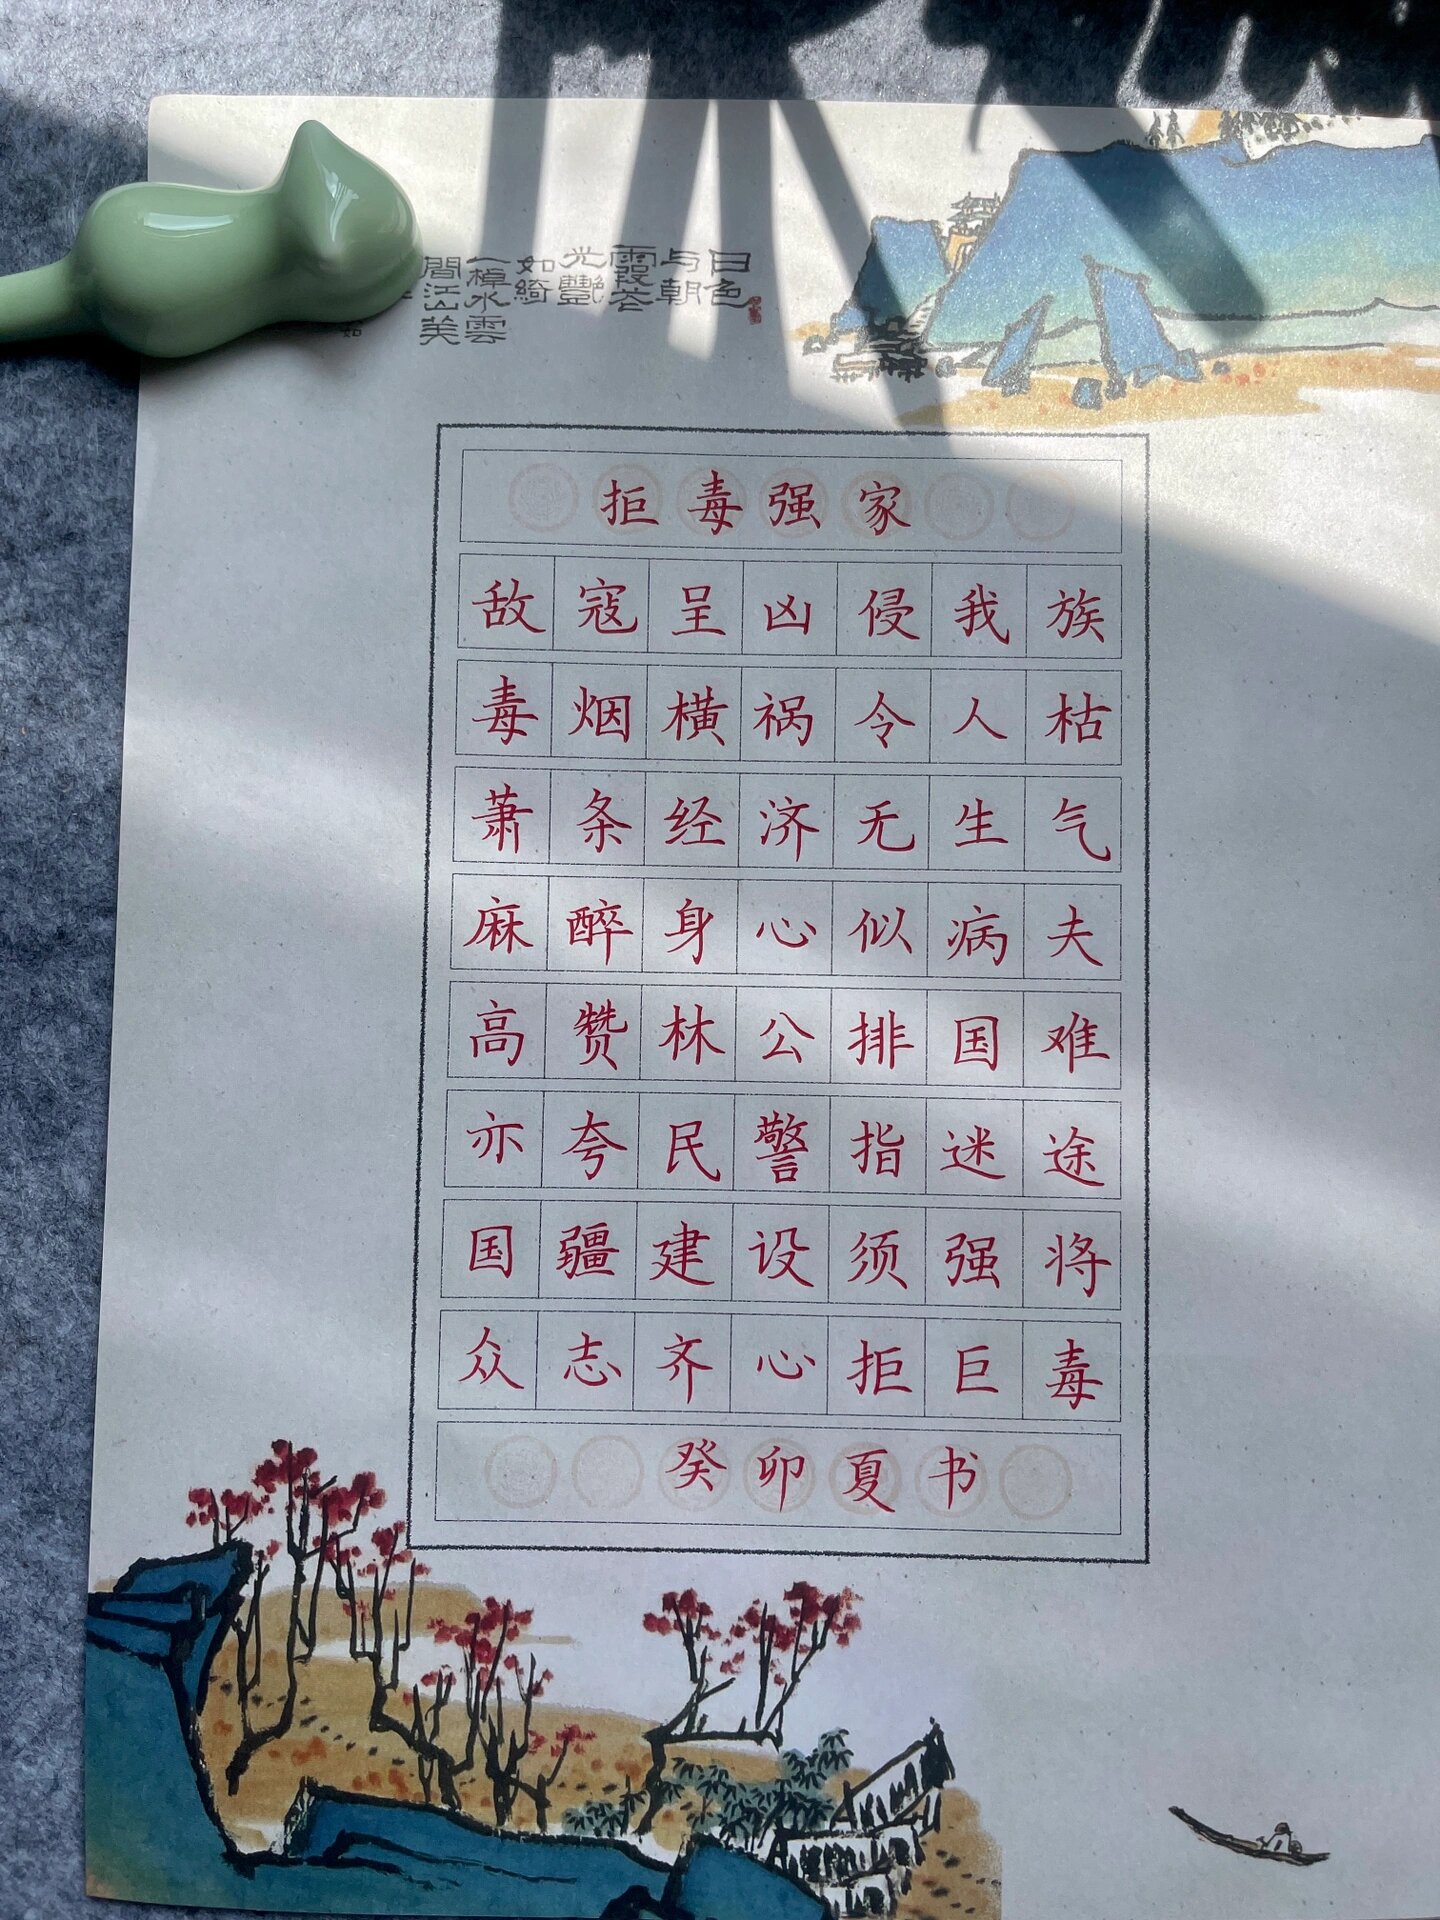 白色
与朝
雨霞花
光艷
如綺
一樟水雲
間江山美
如
拒毒强家
敌寇呈凶侵我族
毒烟横祸令人枯
萧条经济无生气
麻醉身心似病夫
高赞林公排国难
亦夸民警指迷途
国疆建设须强将
众志齐心拒巨毒
癸卯夏书